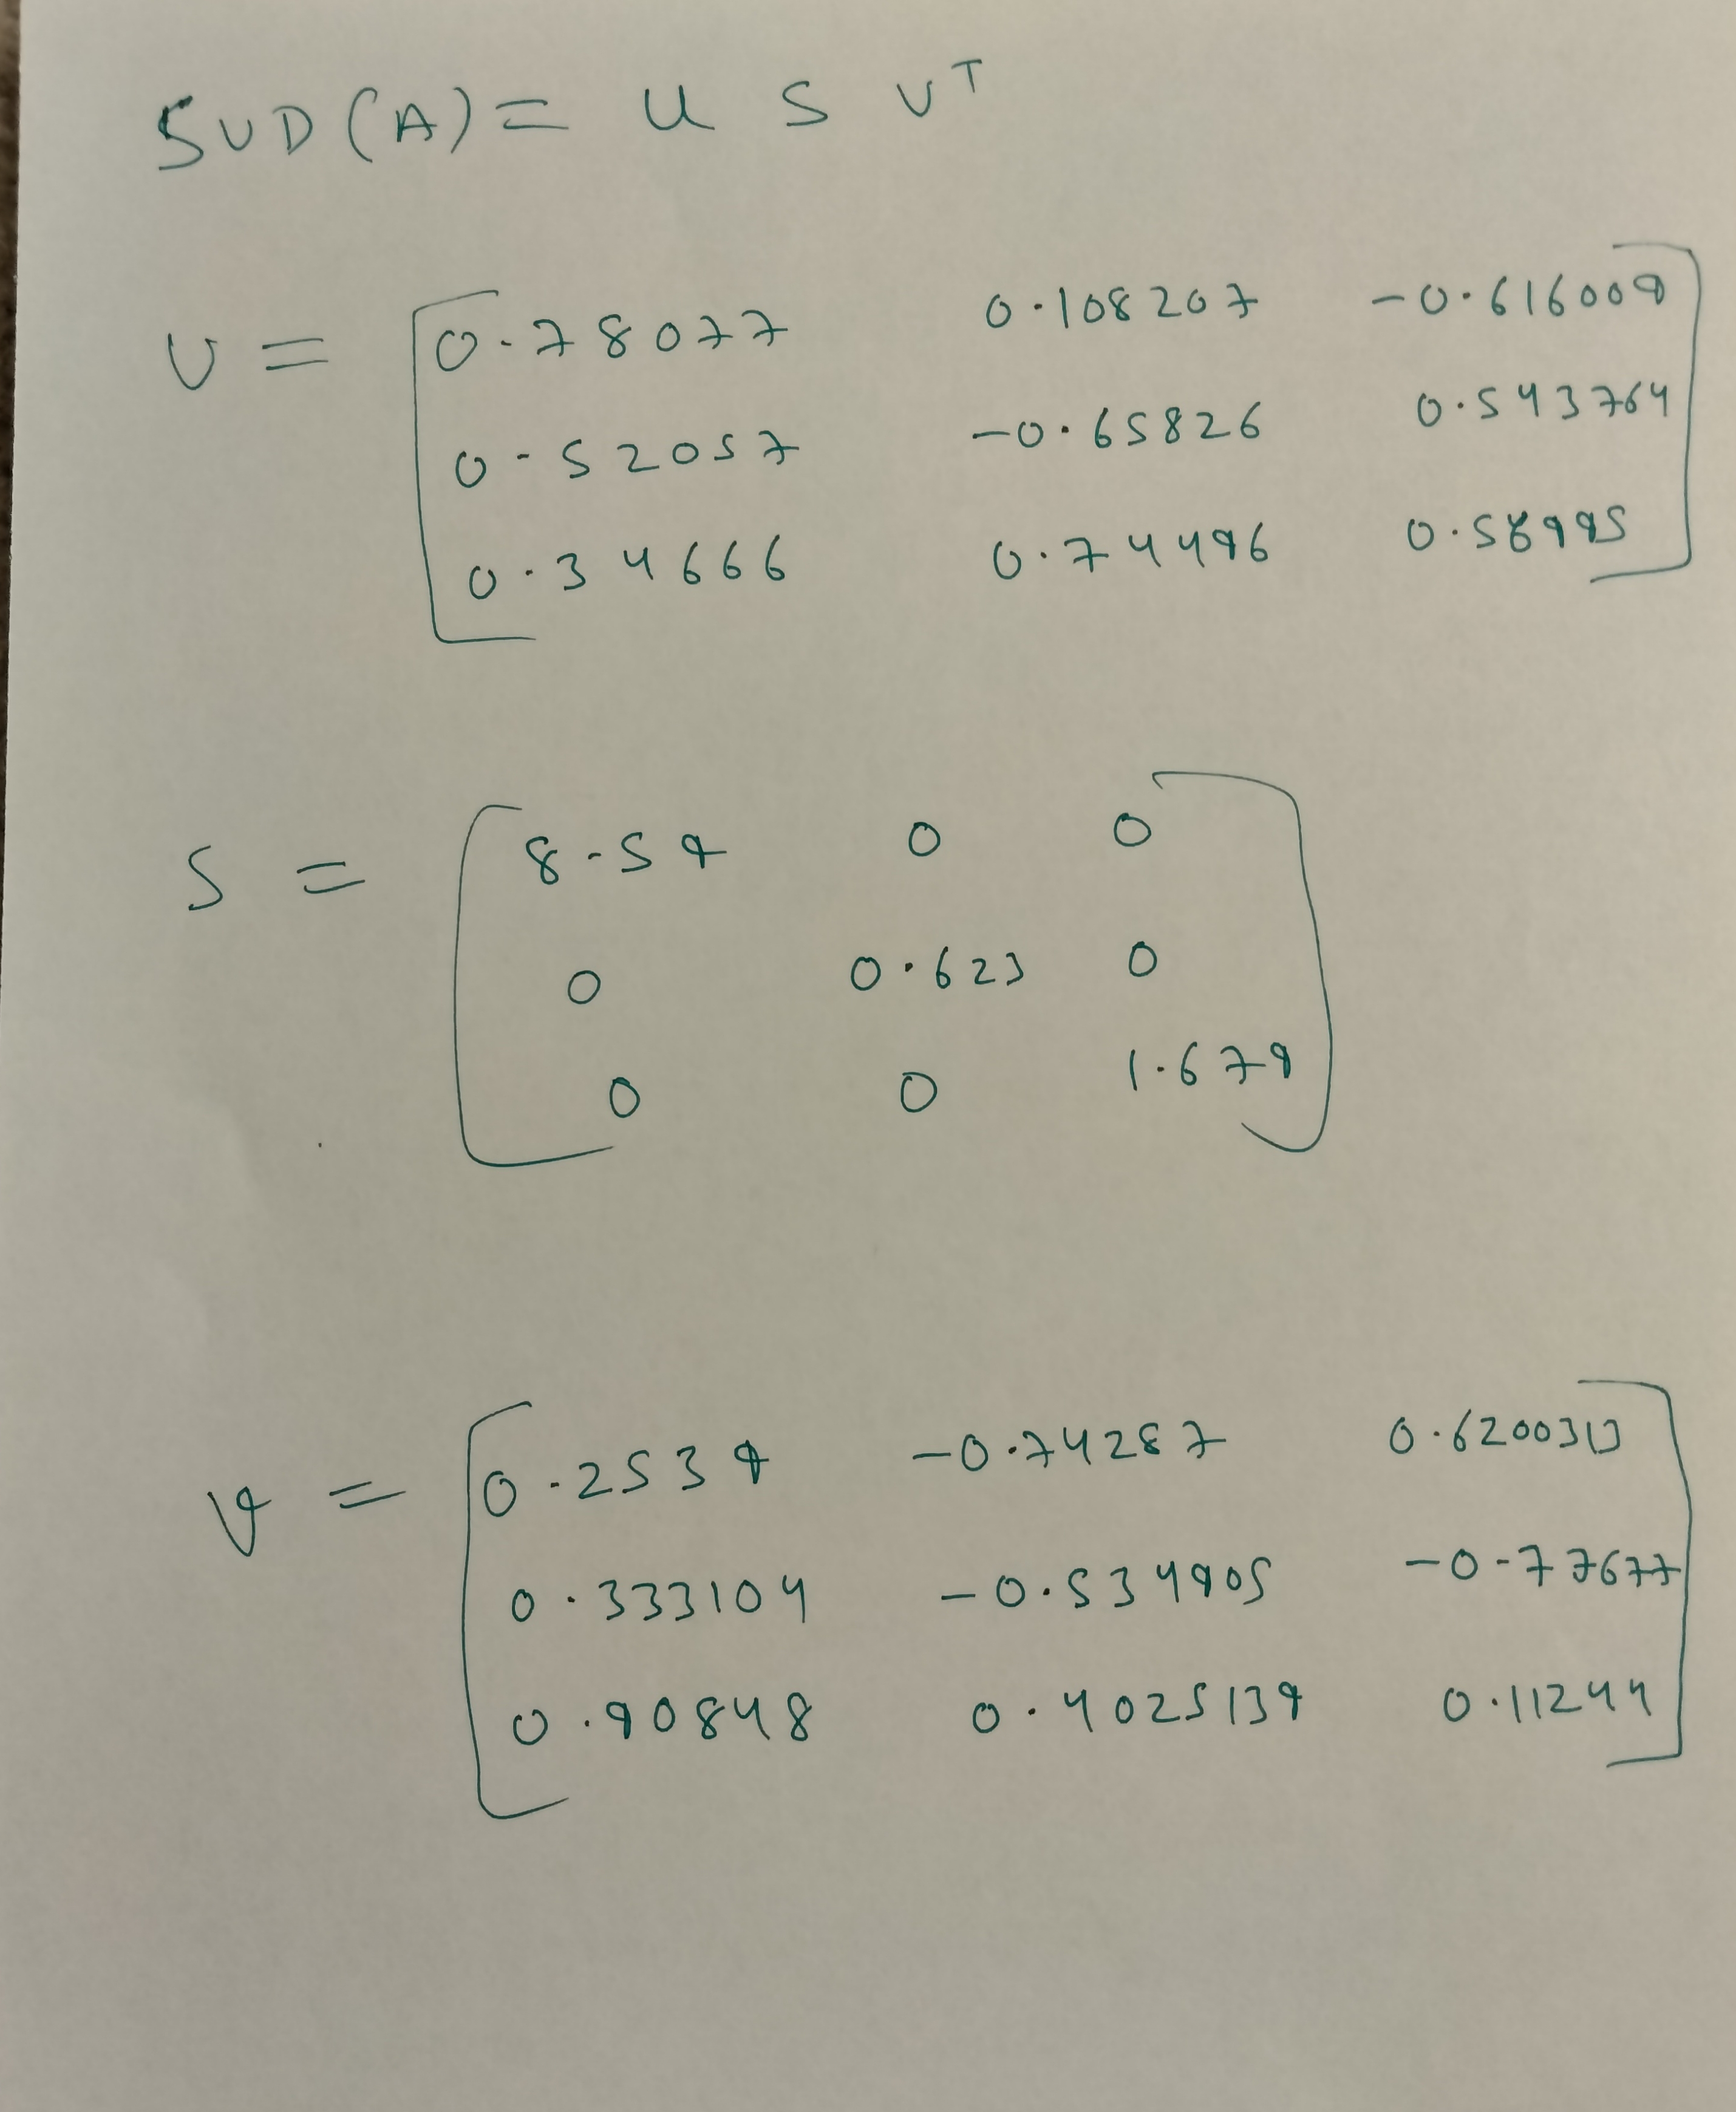 SVD(A) = U S V^T
U = [ 0.78077 0.108207 -0.616009
0.52057 -0.65826 0.543764
0.34666 0.74496 0.56995 ]
S = [ 8.59 0 0
0 0.623 0
0 0 1.679 ]
V = [ 0.2539 -0.74287 0.620031
0.333104 -0.534905 -0.77677
0.90848 0.4025139 0.11244 ]